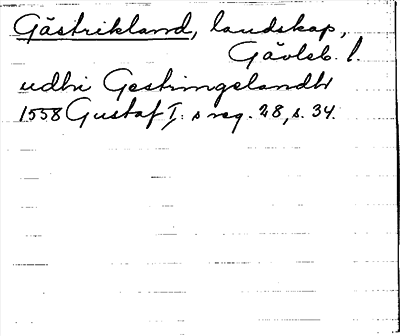 Gästrikland, landskap,
Gävleb. l.
udhi Gestringelandh
1558 Gustaf I:s reg. 28, s. 34.